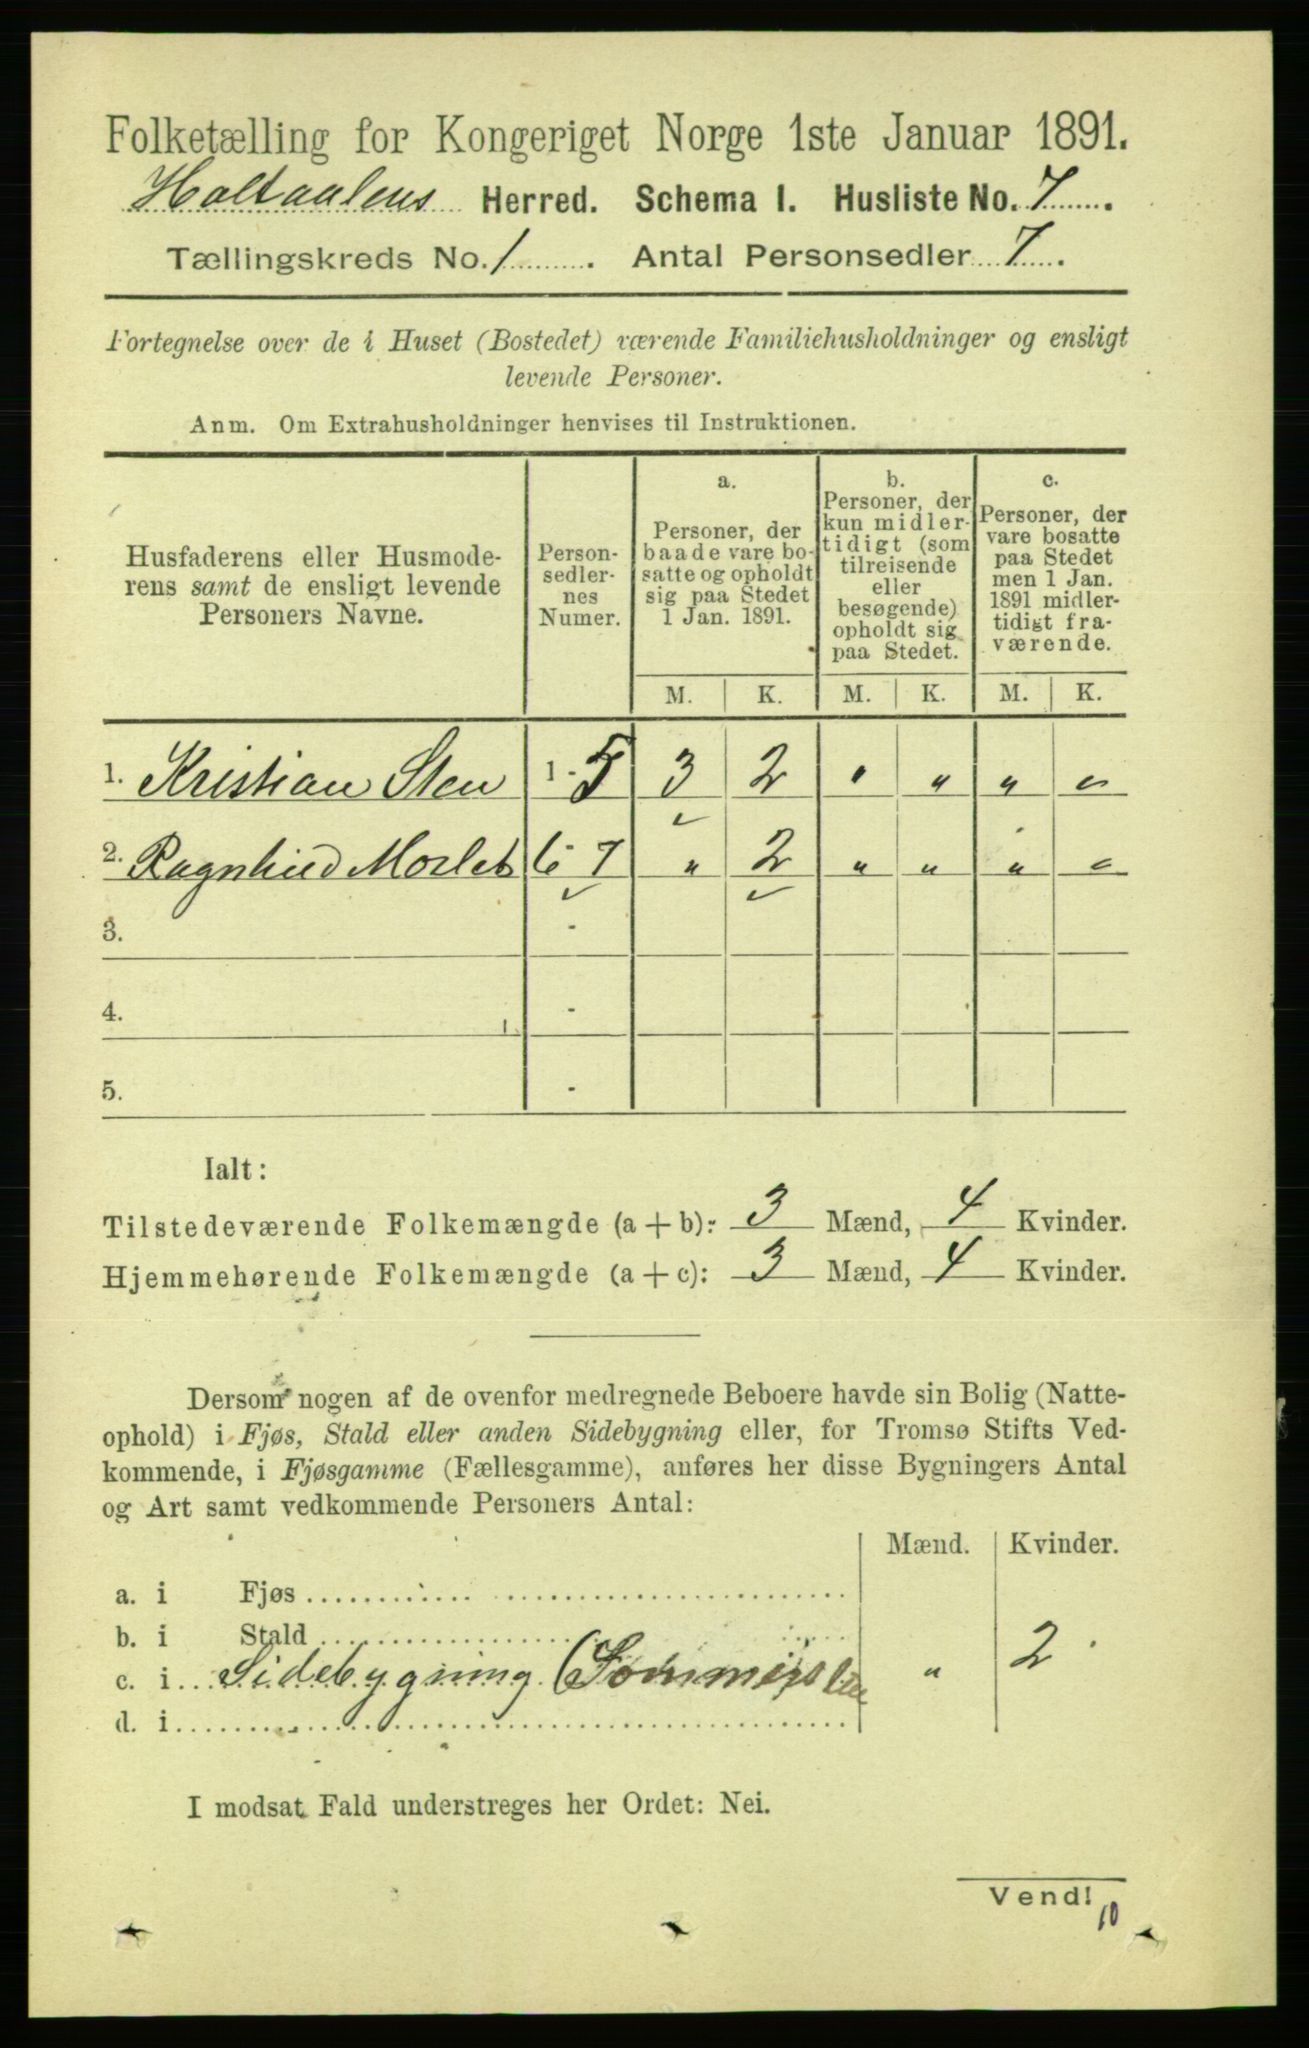 Folketælling for Kongeriget Norge 1ste Januar 1891.
Holtaalens Herred. Schema I. Husliste No. 7.
Tællingskreds No. 1. Antal Personsedler 7.
Fortegnelse over de i Huset (Bostedet) værende Familiehusholdninger og ensligt
levende Personer.
Anm. Om Extrahusholdninger henvises til Instruktionen.
Husfaderens eller Husmode-
rens samt de ensligt levende
Personers Navne.
Person-
sedler-
nes
Numer.
a.
Personer, der
baade vare bo-
satte og opholdt
sig paa Stedet
1 Jan. 1891.
b.
Personer, der
kun midler-
tidigt (som
tilreisende
eller
besøgende)
opholdt sig
paa Stedet.
c.
Personer, der
vare bosatte
paa Stedet
men 1 Jan.
1891 midler-
tidigt fra-
værende.
M. K. M. K. M. K.
1. Kristian Sten 1 - 5 3 2 " " " "
2. Ragnhild 6 - 7 " 2 " " " "
3. -
4. -
5. -
Ialt:
Tilstedeværende Folkemængde (a + b): 3 Mænd, 4 Kvinder.
Hjemmehørende Folkemængde (a + c): 3 Mænd, 4 Kvinder.
Dersom nogen af de ovenfor medregnede Beboere havde sin Bolig (Natte-
ophold) i Fjøs, Stald eller anden Sidebygning eller, for Tromsø Stifts Ved-
kommende, i Fjøsgamme (Fællesgamme), anføres her disse Bygningers Antal
og Art samt vedkommende Personers Antal:
Mænd. Kvinder.
a. i Fjøs
b. i Stald
c. i Sidebygning " 2
d. i
I modsat Fald understreges her Ordet: Nei.
Vend!
10